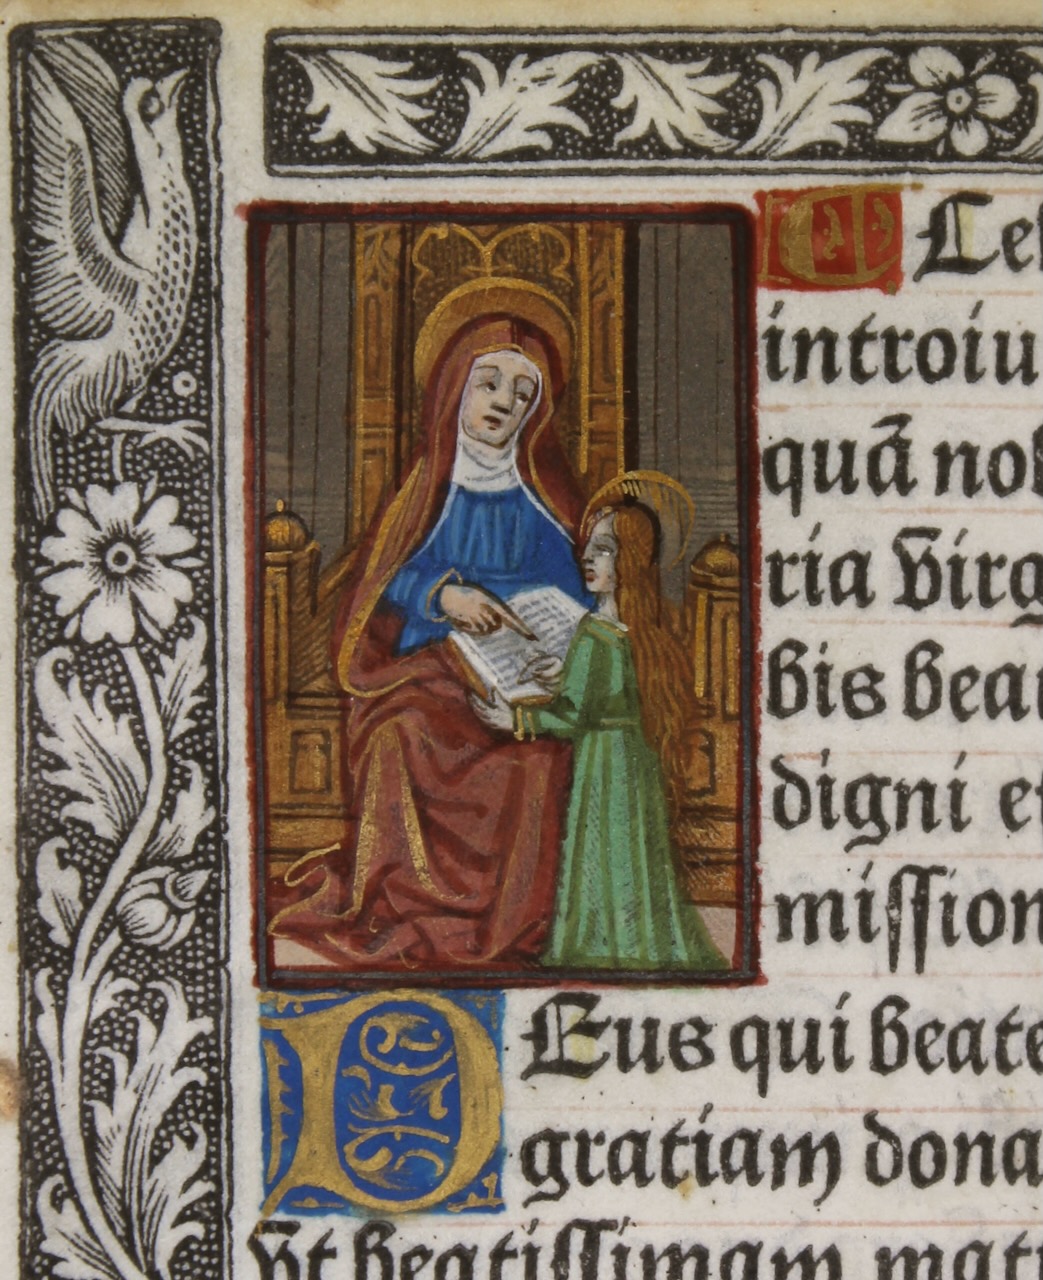 CLe
introiu
quā nob
ria Virg
bis bea
digni ei
miſſion
DEus qui beate
gratiam dona
vt beatiſſimam matr